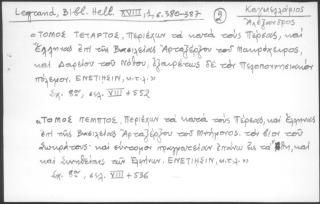 Legrand, Bibl. Hell. XVIII, 1, σ. 380-387
②
Καγκελλάριος
Ἀλέξανδρος
«ΤΟΜΟΣ ΤΕΤΑΡΤΟΣ, Περιέχων τὰ κατὰ τοὺς Πέρσας, καὶ
Ἕλληνας ἐπὶ τῆς Βασιλείας Ἀρταξέρξου τοῦ Μακρόχειρος,
καὶ Δαρείου τοῦ Νόθου, ἐξαιρέτως δὲ τὸν Πελοποννησιακὸν
πόλεμον. ΕΝΕΤΙΗΣΙΝ, κ.τ.λ.»
Σχ. 8ον, σελ. VIII + 552
«ΤΟΜΟΣ ΠΕΜΠΤΟΣ, Περιέχων τὰ κατὰ τοὺς Πέρσας, καὶ Ἕλληνας
ἐπὶ τῆς Βασιλείας Ἀρταξέρξου τοῦ Μνήμονος. τὸν βίον τοῦ
Σωκράτους· καὶ σύντομον πραγματείαν ἐπάνω εἰς τὰ ἤθη, καὶ
καὶ Συνηθείας τῶν Ἑλλήνων. ΕΝΕΤΙΗΣΙΝ, κ.τ.λ.»
Σχ. 8ον, σελ. VIII + 536